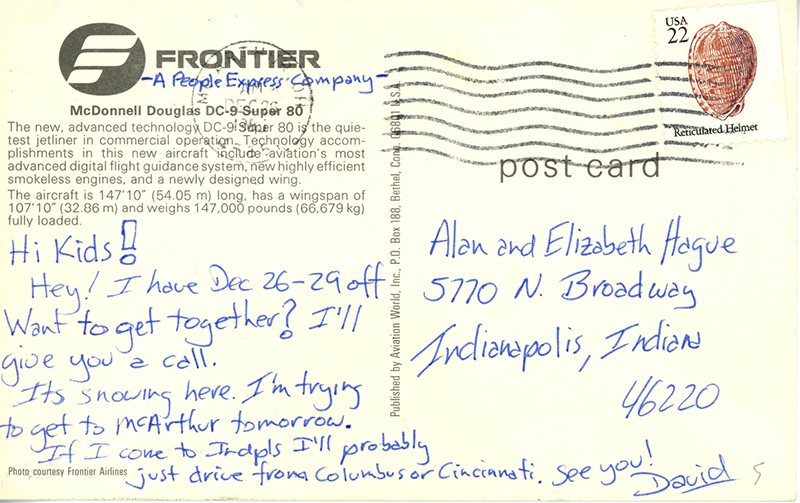 FRONTIER
-A People Express Company-
McDonnell Douglas DC-9 Super 80
The new, advanced technology DC-9 Super 80 is the quie-
test jetliner in commercial operation. Technology accom-
plishments in this new aircraft include aviation's most
advanced digital flight guidance system, new highly efficient
smokeless engines, and a newly designed wing.
The aircraft is 147'10" (54.05 m) long, has a wingspan of
107'10" (32.86 m) and weighs 147,000 pounds (66,679 kg)
fully loaded.
Hi Kids!
Hey! I have Dec 26-29 off
Want to get together? I'll
give you a call.
Its snowing here. I'm trying
to get to McArthur tomorrow.
If I come to Indpls I'll probably
just drive from Columbus or Cincinnati. See you!
David
Photo courtesy Frontier Airlines
Published by Aviation World, Inc., P.O. Box 188, Bethel, Conn. 06801 U.S.A.
USA
22
Reticulated Helmet
post card
Alan and Elizabeth Hague
5770 N. Broadway
Indianapolis, Indiana
46220
5